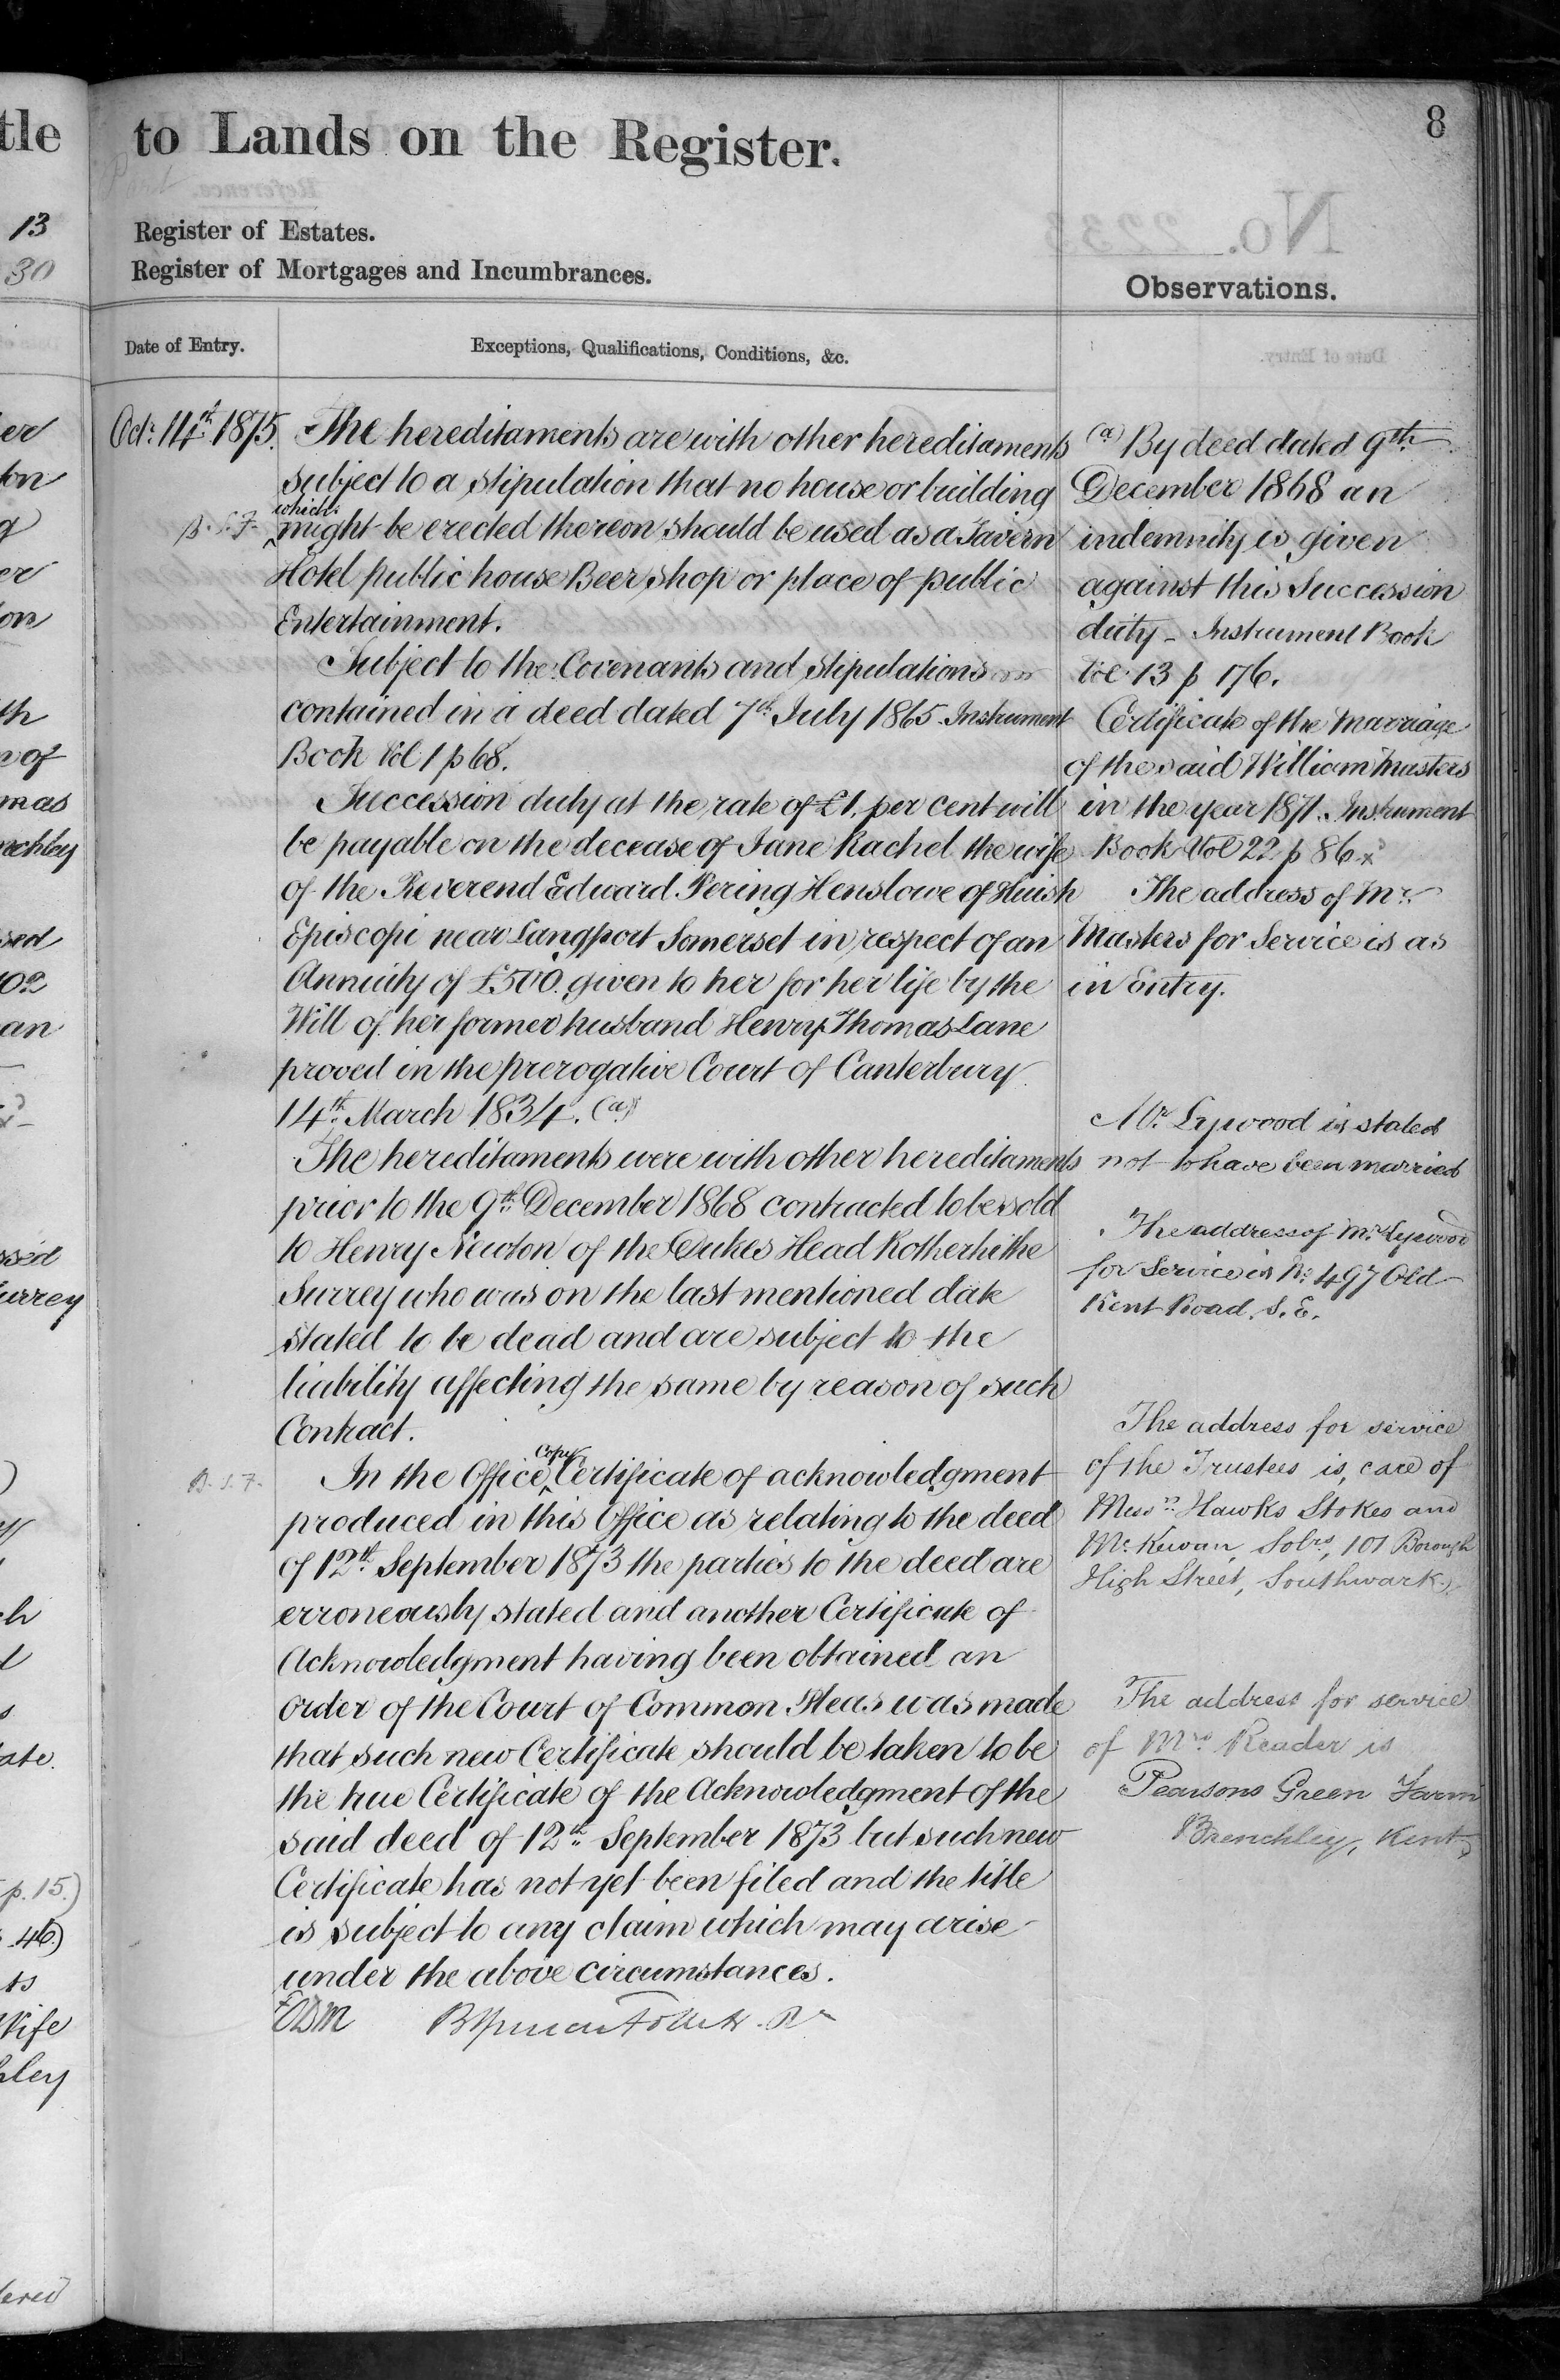 tle
to Lands on the Register.
8
13
30
Register of Estates.
Register of Mortgages and Incumbrances.
Observations.
Date of Entry.
Exceptions, Qualifications, Conditions, &c.
Octr. 14th 1875.
The hereditaments are with other hereditaments
subject to a stipulation that no house or building
which
B.S.F. might be erected thereon should be used as a Tavern
Hotel public house Beer shop or place of public
Entertainment.
Subject to the Covenants and stipulations
contained in a deed dated 7th July 1865. Instrument
Book Vol 1 p 68.
Succession duty at the rate of £1. per cent will
be payable on the decease of Jane Rachel the wife
of the Reverend Edward Pering Henslowe of Huish
Episcopi near Langport Somerset in respect of an
Annuity of £500 given to her for her life by the
Will of her former husband Henry Thomas Lane
proved in the prerogative Court of Canterbury
14th March 1834. (a)
The hereditaments were with other hereditaments
prior to the 9th December 1868 contracted to be sold
to Henry Newton of the Dukes Head Rotherhithe
Surrey who was on the last mentioned date
stated to be dead and are subject to the
liability affecting the same by reason of such
Contract.
Copy
B.S.F. In the Office Certificate of acknowledgment
produced in this Office as relating to the deed
of 12th September 1873 the parties to the deed are
erroneously stated and another Certificate of
Acknowledgment having been obtained an
order of the Court of Common Pleas was made
that such new Certificate should be taken to be
the true Certificate of the Acknowledgment of the
said deed of 12th September 1873 but such new
Certificate has not yet been filed and the title
is subject to any claim which may arise
under the above circumstances.
(a) By deed dated 9th
December 1868 an
indemnity is given
against this Succession
duty - Instrument Book
Vol. 13 p 176.
Certificate of the Marriage
of the said William Masters
in the year 1871. Instrument
Book Vol 22 p 86
The address of Mr.
Masters for Service is as
in Entry.
Mr. Lywood is stated
not to have been married
The address of Mr. Lywood
for Service is No. 497 Old
Kent Road. S.E.
The address for service
of the Trustees is, care of
Messrs. Hawks Stokes and
McKewan, Solrs, 101 Borough
High Street, Southwark
The address for service
of Mrs Reader is
Pearsons Green Farm
Brenchley, Kent